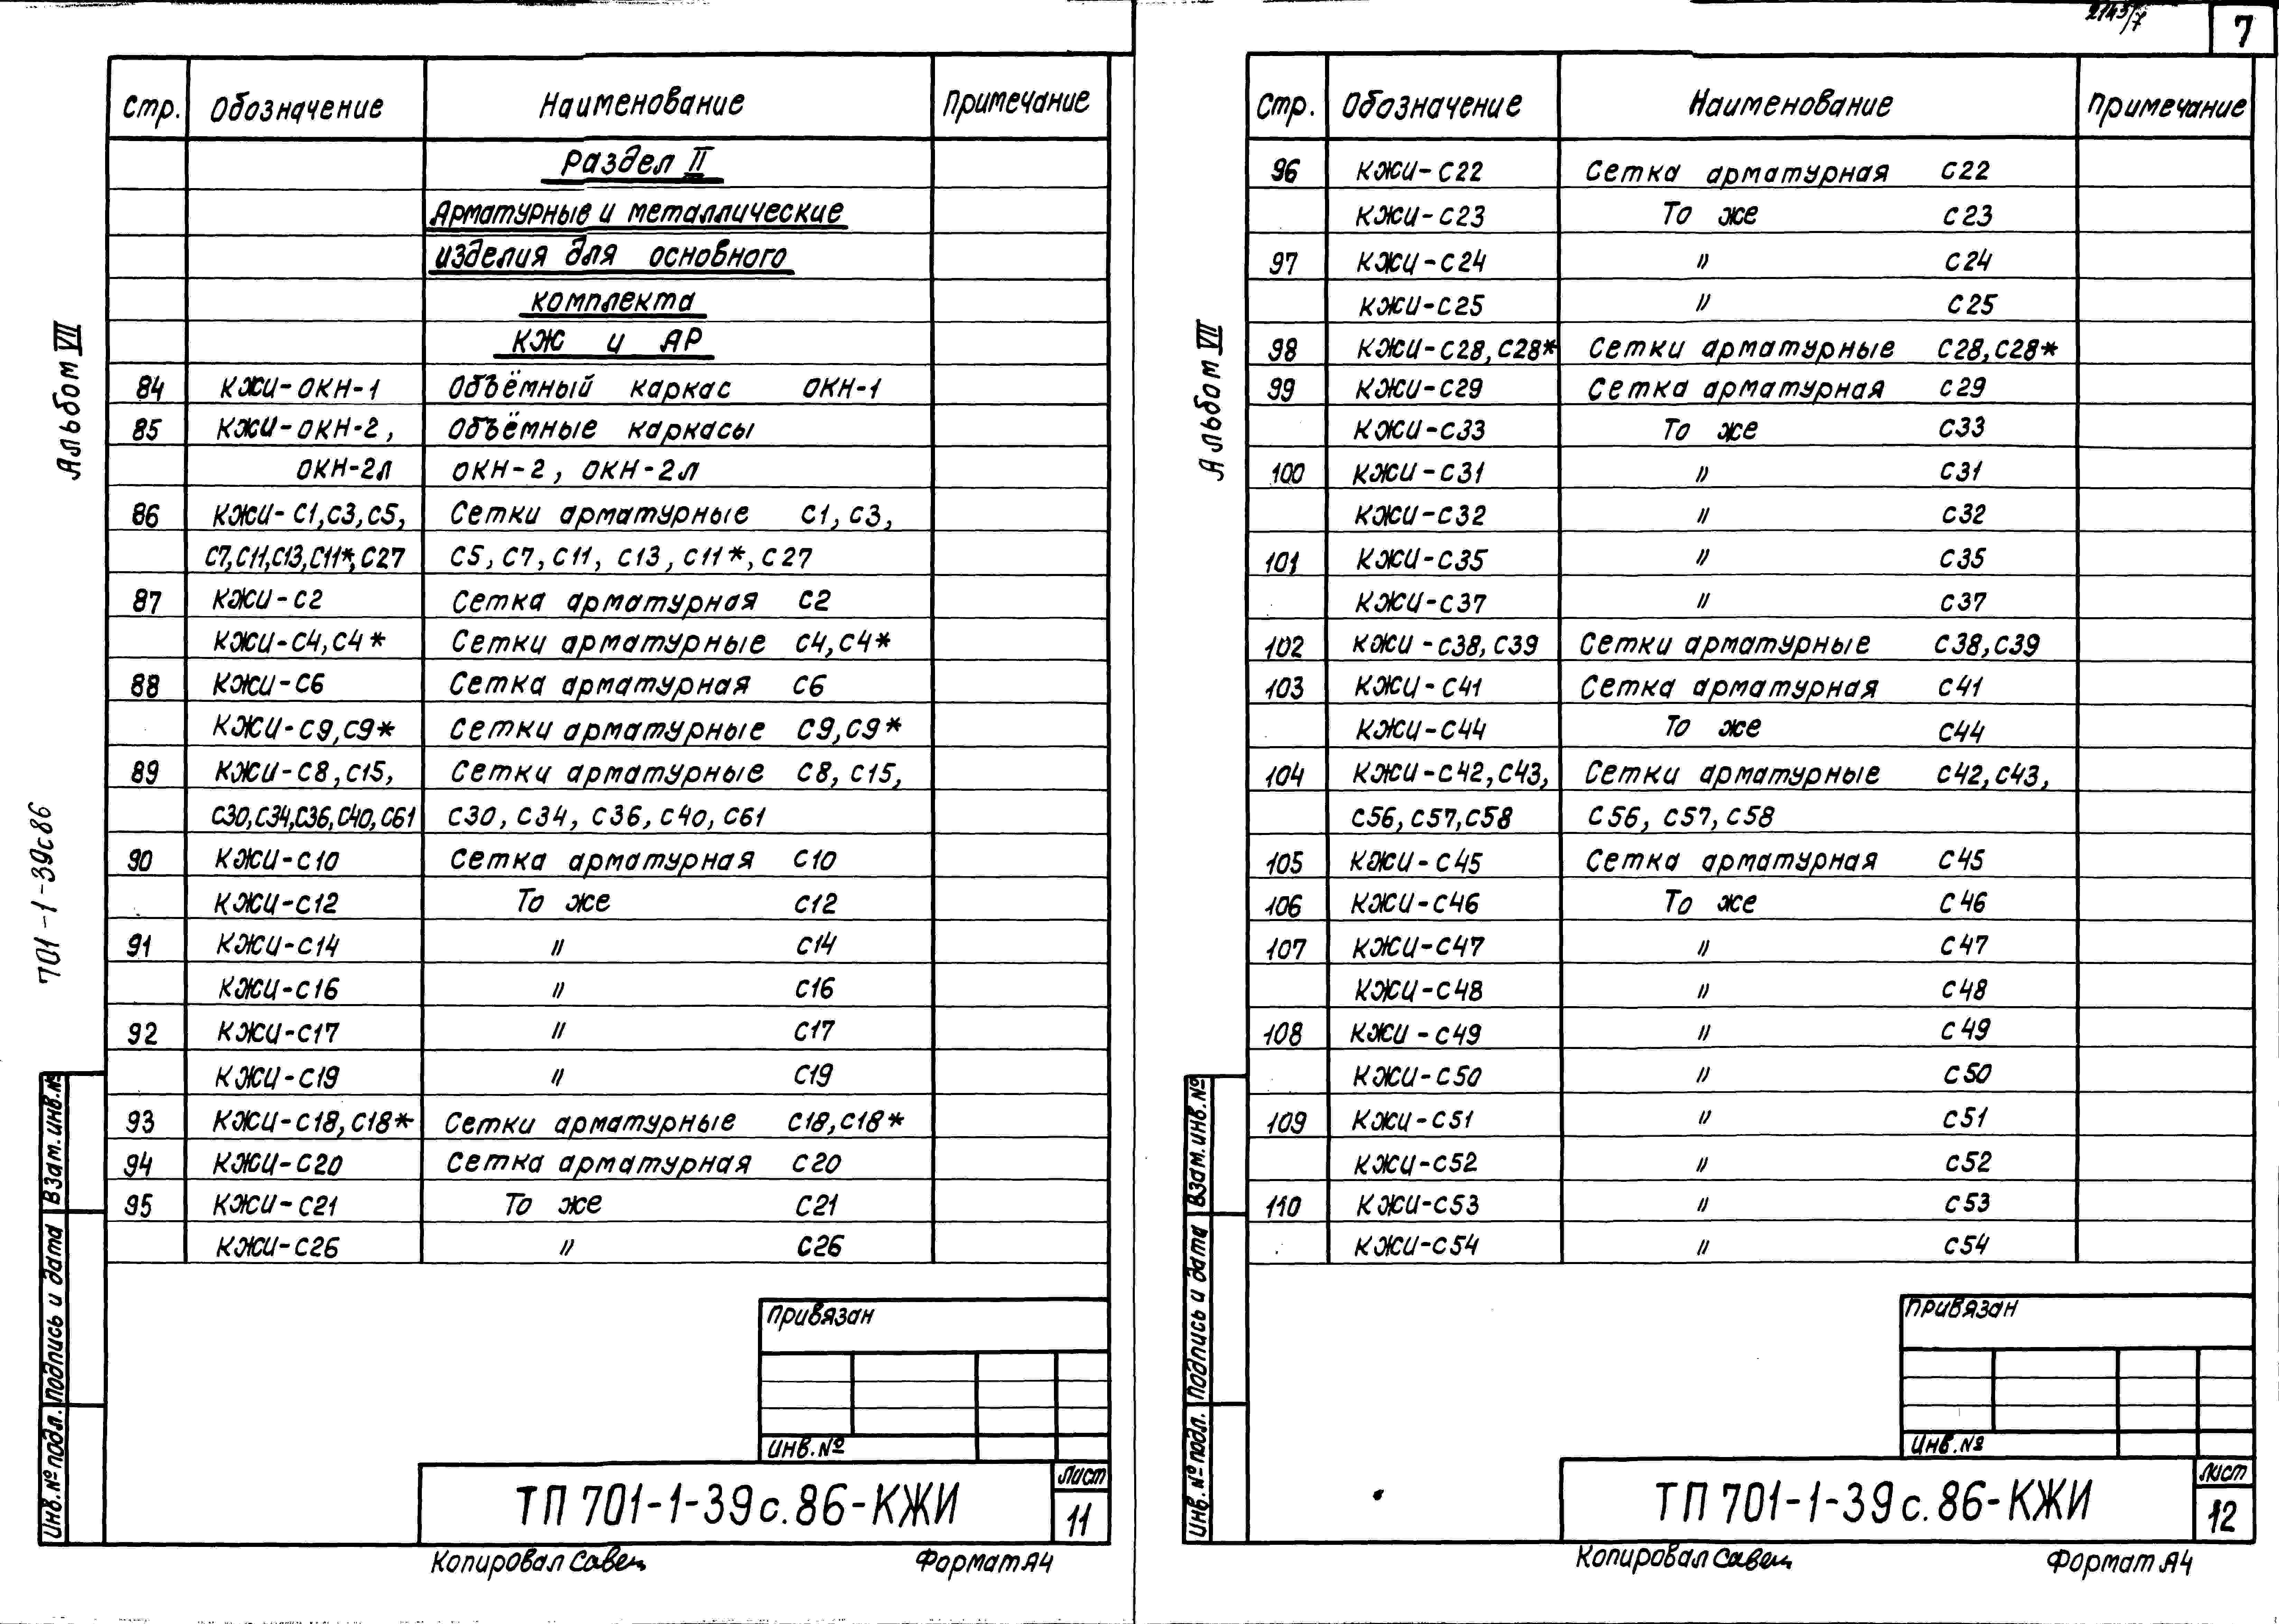 Альбом VII
701-1-39с86
Взам.инв.№
Подпись и дата
Инв.№ подл.
Стр. Обозначение Наименование Примечание
Раздел II
Арматурные и металлические
изделия для основного
комплекта
КЖ и АР
84 КЖИ-ОКН-1 Объёмный каркас ОКН-1
85 КЖИ-ОКН-2, Объёмные каркасы
ОКН-2л ОКН-2, ОКН-2л
86 КЖИ-С1,С3,С5, Сетки арматурные С1, С3,
С7,С11,С13,С11*,С27 С5, С7, С11, С13, С11*, С27
87 КЖИ-С2 Сетка арматурная С2
КЖИ-С4,С4* Сетки арматурные С4,С4*
88 КЖИ-С6 Сетка арматурная С6
КЖИ-С9,С9* Сетки арматурные С9,С9*
89 КЖИ-С8,С15, Сетки арматурные С8, С15,
С30,С34,С36,С40,С61 С30, С34, С36, С40, С61
90 КЖИ-С10 Сетка арматурная С10
КЖИ-С12 То же С12
91 КЖИ-С14 " С14
КЖИ-С16 " С16
92 КЖИ-С17 " С17
КЖИ-С19 " С19
93 КЖИ-С18,С18* Сетки арматурные С18,С18*
94 КЖИ-С20 Сетка арматурная С20
95 КЖИ-С21 То же С21
КЖИ-С26 " С26
Привязан
Инв.№
ТП 701-1-39с.86-КЖИ
Лист
11
Копировал Савец Формат А4
7
Альбом VII
Взам.инв.№
Подпись и дата
Инв.№ подл.
Стр. Обозначение Наименование Примечание
96 КЖИ-С22 Сетка арматурная С22
КЖИ-С23 То же С23
97 КЖИ-С24 " С24
КЖИ-С25 " С25
98 КЖИ-С28,С28* Сетки арматурные С28,С28*
99 КЖИ-С29 Сетка арматурная С29
КЖИ-С33 То же С33
100 КЖИ-С31 " С31
КЖИ-С32 " С32
101 КЖИ-С35 " С35
КЖИ-С37 " С37
102 КЖИ-С38,С39 Сетки арматурные С38,С39
103 КЖИ-С41 Сетка арматурная С41
КЖИ-С44 То же С44
104 КЖИ-С42,С43, Сетки арматурные С42,С43,
С56,С57,С58 С56, С57, С58
105 КЖИ-С45 Сетка арматурная С45
106 КЖИ-С46 То же С46
107 КЖИ-С47 " С47
КЖИ-С48 " С48
108 КЖИ-С49 " С49
КЖИ-С50 " С50
109 КЖИ-С51 " С51
КЖИ-С52 " С52
110 КЖИ-С53 " С53
КЖИ-С54 " С54
Привязан
Инв.№
ТП 701-1-39с.86-КЖИ
Лист
12
Копировал Савец Формат А4